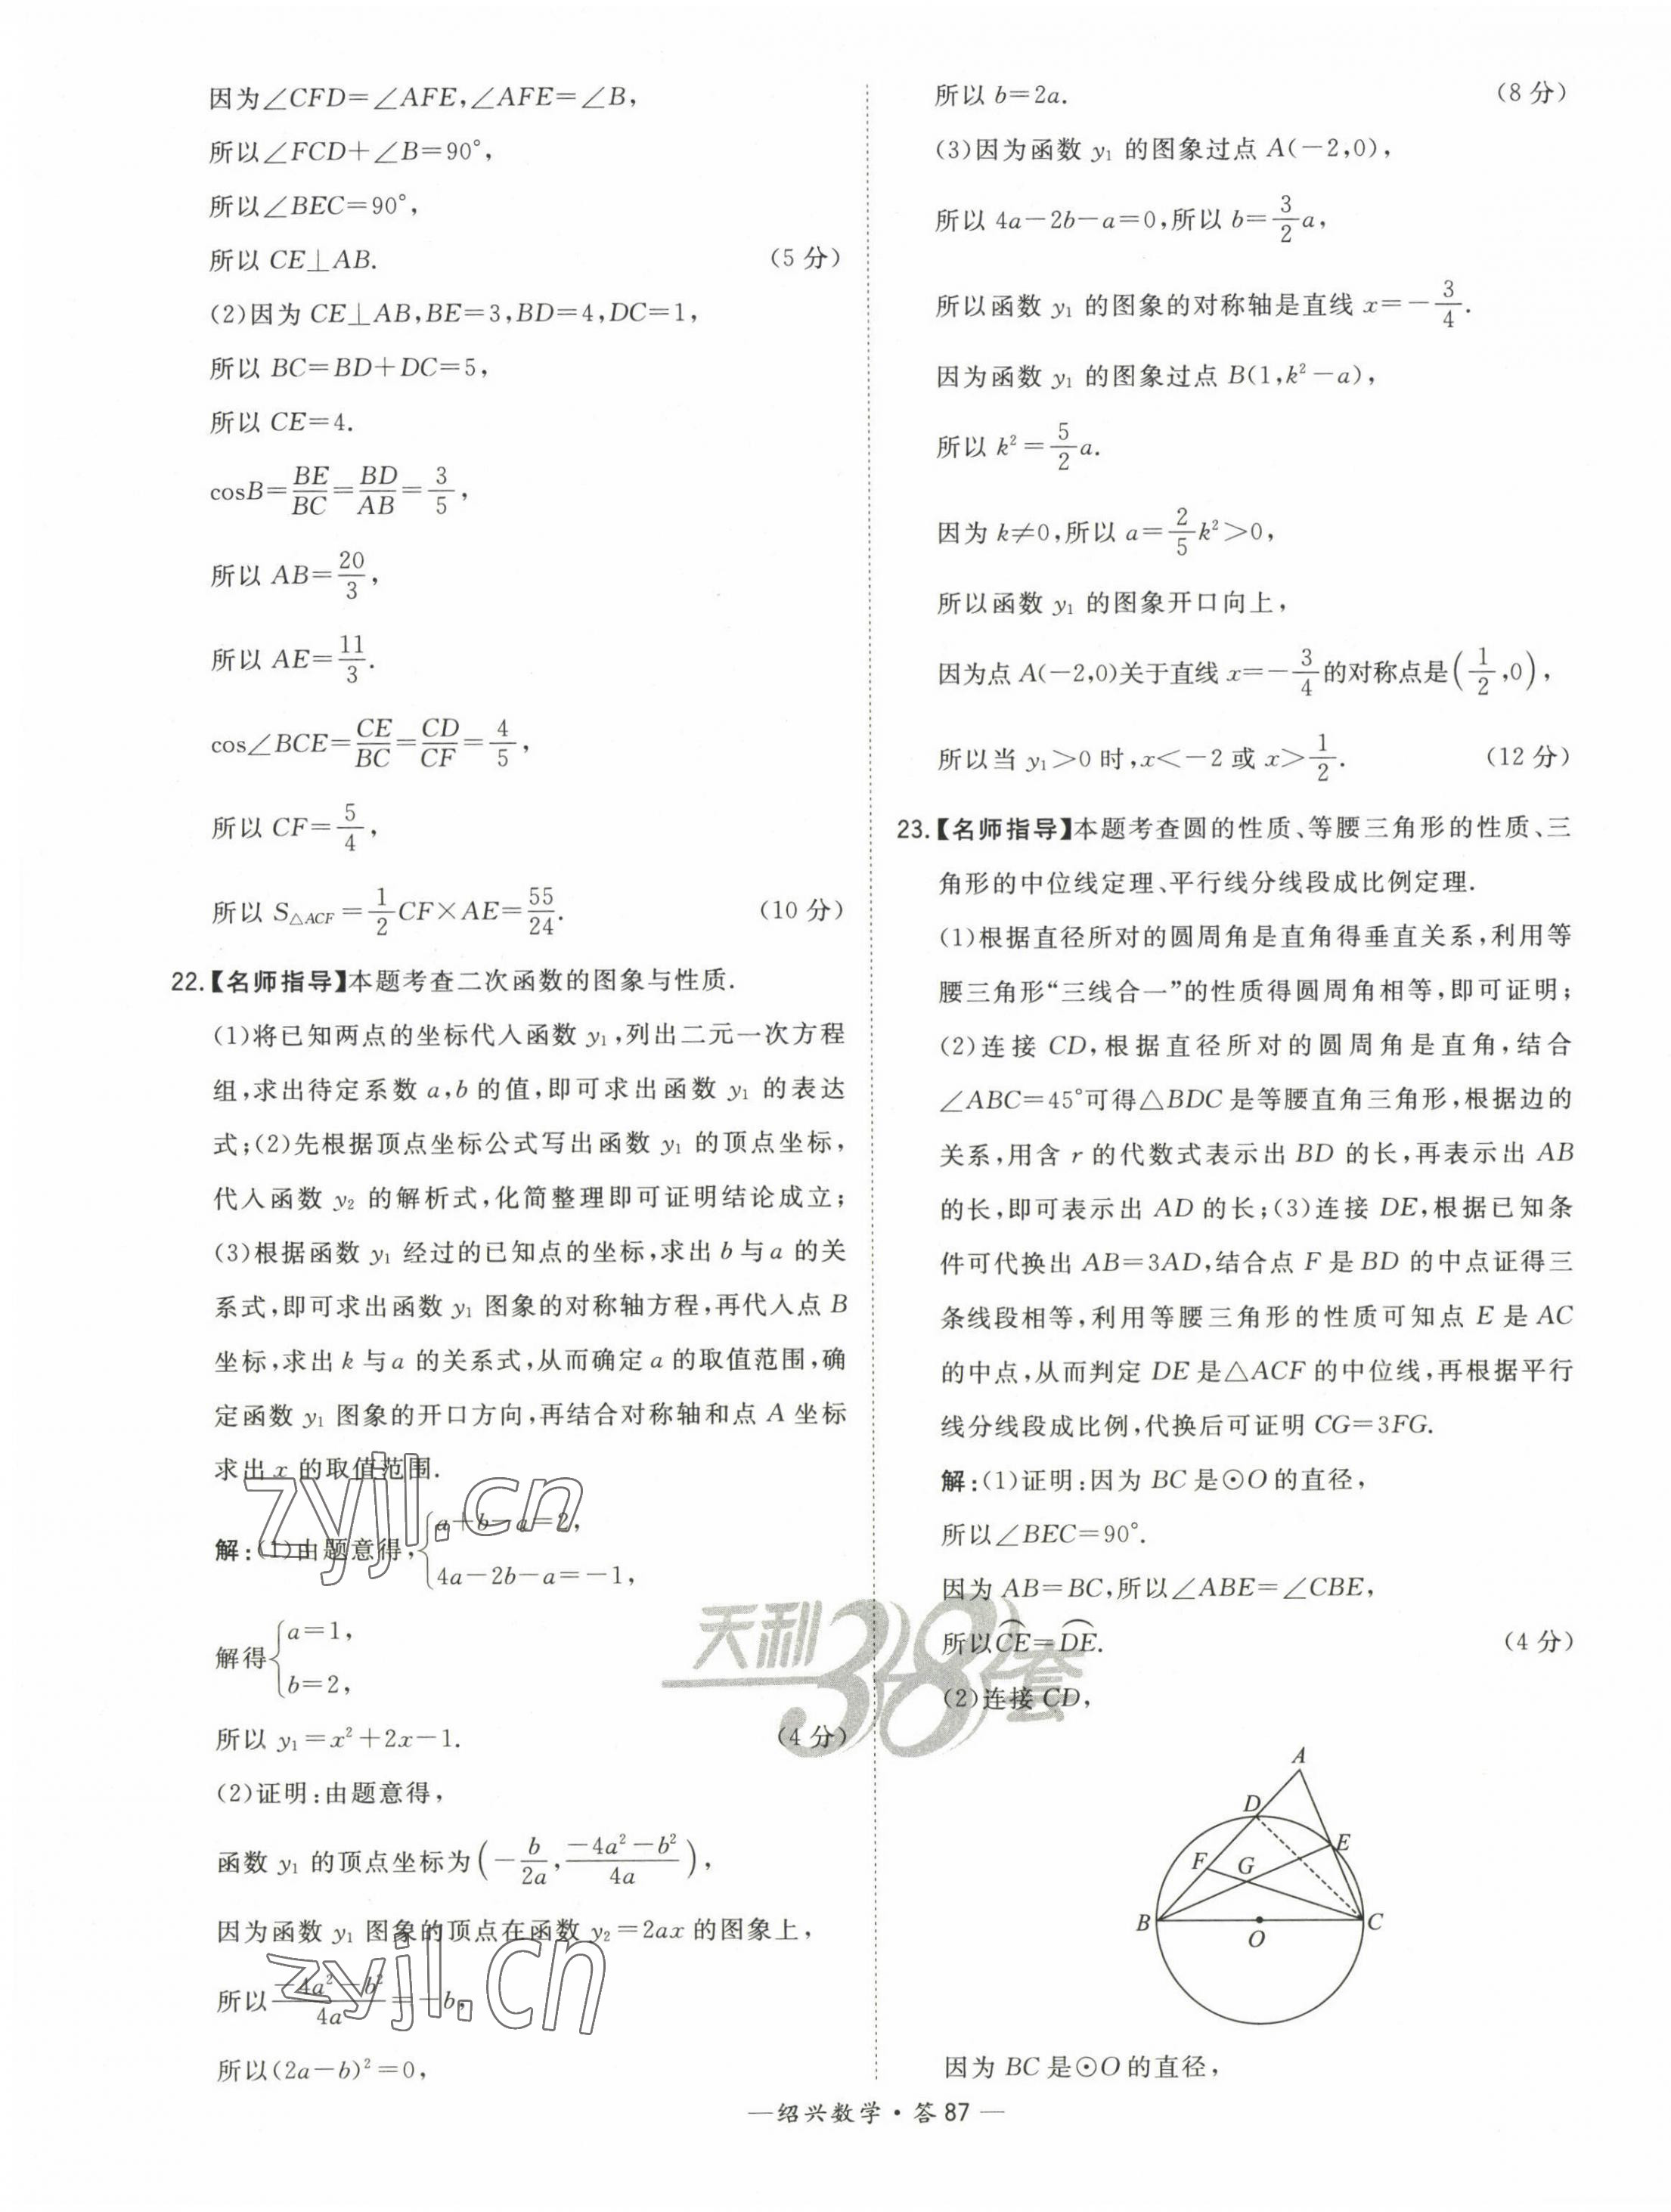 因为∠CFD=∠AFE,∠AFE=∠B,
所以∠FCD+∠B=90°,
所以∠BEC=90°,
所以 CE⊥AB. (5 分)
(2)因为 CE⊥AB,BE=3,BD=4,DC=1,
所以 BC=BD+DC=5,
所以 CE=4.
cosB=BE/BC=BD/AB=3/5,
所以 AB=20/3,
所以 AE=11/3.
cos∠BCE=CE/BC=CD/CF=4/5,
所以 CF=5/4,
所以 S△ACF=1/2CF×AE=55/24. (10 分)
22.【名师指导】本题考查二次函数的图象与性质.
(1)将已知两点的坐标代入函数 y₁,列出二元一次方程
组,求出待定系数 a,b 的值,即可求出函数 y₁ 的表达
式;(2)先根据顶点坐标公式写出函数 y₁ 的顶点坐标,
代入函数 y₂ 的解析式,化简整理即可证明结论成立;
(3)根据函数 y₁ 经过的已知点的坐标,求出 b 与 a 的关
系式,即可求出函数 y₁ 图象的对称轴方程,再代入点 B
坐标,求出 k 与 a 的关系式,从而确定 a 的取值范围,确
定函数 y₁ 图象的开口方向,再结合对称轴和点 A 坐标
求出 x 的取值范围.
zyjl.cn
解:(1)由题意得,{a+b-a=2,
4a-2b-a=-1,
解得{a=1,
b=2,
所以 y₁=x²+2x-1. (4 分)
(2)证明:由题意得,
函数 y₁ 的顶点坐标为(-b/2a,(-4a²-b²)/4a),
因为函数 y₁ 图象的顶点在函数 y₂=2ax 的图象上,
所以(-4a²-b²)/4a=-b,
zyjl.cn
所以(2a-b)²=0,
所以 b=2a. (8 分)
(3)因为函数 y₁ 的图象过点 A(-2,0),
所以 4a-2b-a=0,所以 b=3/2a,
所以函数 y₁ 的图象的对称轴是直线 x=-3/4.
因为函数 y₁ 的图象过点 B(1,k²-a),
所以 k²=5/2a.
因为 k≠0,所以 a=2/5k²>0,
所以函数 y₁ 的图象开口向上,
因为点 A(-2,0)关于直线 x=-3/4的对称点是(1/2,0),
所以当 y₁>0 时,x<-2 或 x>1/2. (12 分)
23.【名师指导】本题考查圆的性质、等腰三角形的性质、三
角形的中位线定理、平行线分线段成比例定理.
(1)根据直径所对的圆周角是直角得垂直关系,利用等
腰三角形“三线合一”的性质得圆周角相等,即可证明;
(2)连接 CD,根据直径所对的圆周角是直角,结合
∠ABC=45°可得△BDC 是等腰直角三角形,根据边的
关系,用含 r 的代数式表示出 BD 的长,再表示出 AB
的长,即可表示出 AD 的长;(3)连接 DE,根据已知条
件可代换出 AB=3AD,结合点 F 是 BD 的中点证得三
条线段相等,利用等腰三角形的性质可知点 E 是 AC
的中点,从而判定 DE 是△ACF 的中位线,再根据平行
线分线段成比例,代换后可证明 CG=3FG.
解:(1)证明:因为 BC 是⊙O 的直径,
所以∠BEC=90°.
因为 AB=BC,所以∠ABE=∠CBE,
所以⌒CE=⌒DE. (4 分)
天利38套
(2)连接 CD,
A
D
E
F
G
B
O
C
因为 BC 是⊙O 的直径,
—绍兴数学·答 87 —